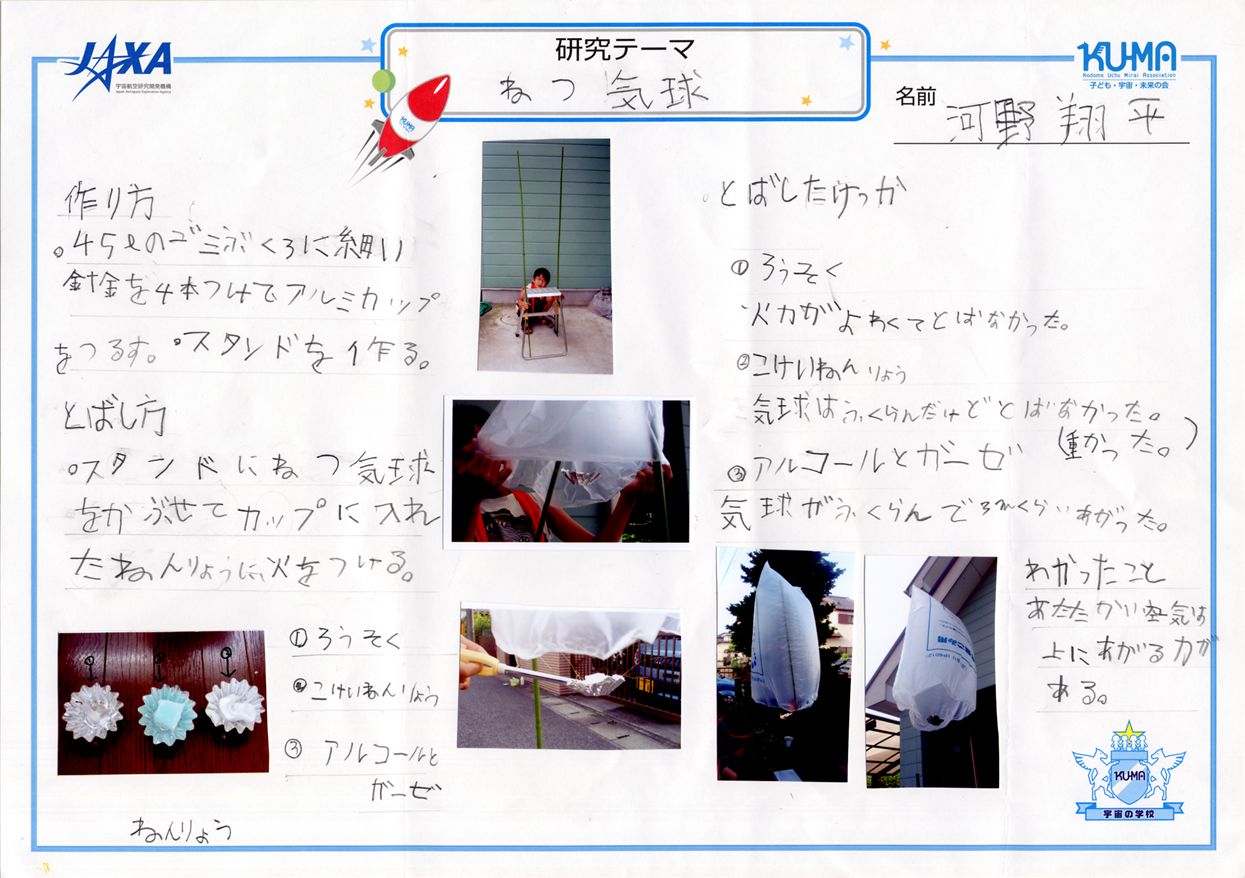 JAXA
宇宙航空研究開発機構
Japan Aerospace Exploration Agency
研究テーマ
ねつ気球
KUMA
KUMA
Kodomo Uchu Mirai Association
子ども・宇宙・未来の会
名前 河野翔平
作り方
。45ℓのゴミぶくろに細い
針金を4本つけてアルミカップ
をつるす。。スタンドを作る。
とばし方
。スタンドにねつ気球
をかぶせてカップに入れ
たねんりょうに、火をつける。
① ② ③
①ろうそく
②こけいねんりょう
③アルコールと
ガーゼ
ねんりょう
。とばしたけっか
①ろうそく
火力がよわくてとばなかった。
②こけいねんりょう
気球はふくらんだけどとばなかった。
(重かった。)
③アルコールとガーゼ
気球がふくらんで3mくらいあがった。
わかったこと
あたたかい空気は
上にあがる力が
ある。
KUMA
宇宙の学校